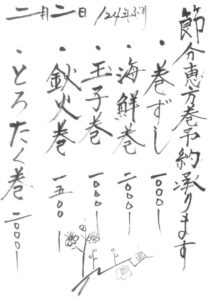 節分恵方巻予約承ります
・巻ずし 一〇〇〇ー
・海鮮巻 二〇〇〇ー
・玉子巻 一〇〇〇ー
・鉄火巻 一五〇〇ー
・とろたく巻 二〇〇〇ー
二月二日 124年ぶり